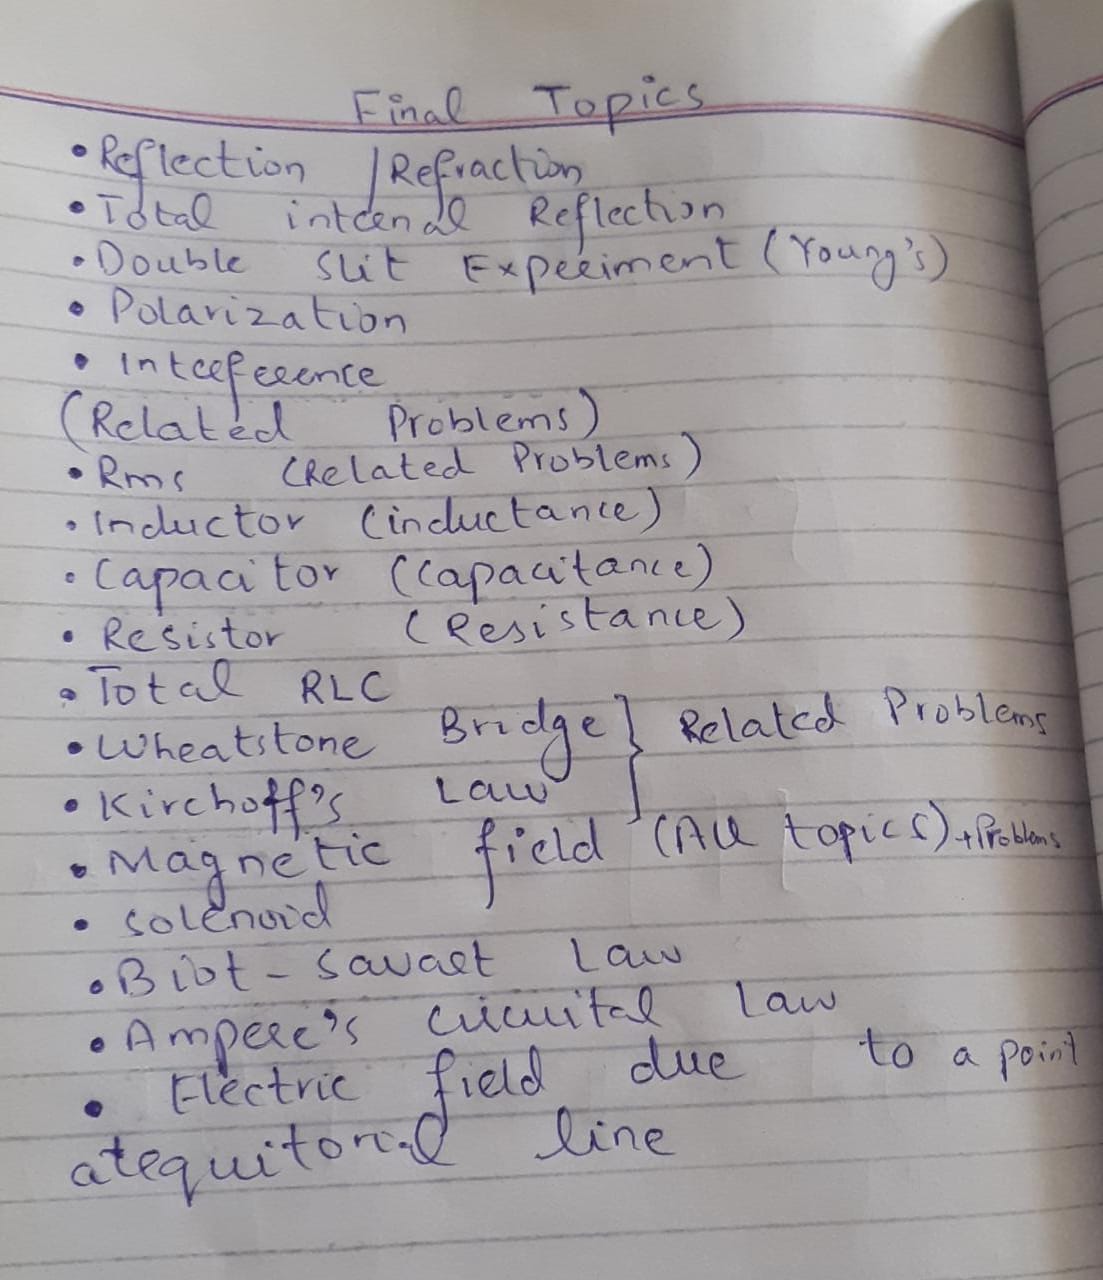 Final Topics
• Reflection / Refraction
• Total internal Reflection
• Double Slit Experiment (Young's)
• Polarization
• Interference
(Related Problems)
• Rms (Related Problems)
• Inductor (inductance)
• Capacitor (Capacitance)
• Resistor (Resistance)
• Total RLC
• Wheatstone Bridge } Related Problems
• Kirchoff's Law
• Magnetic field (All topics) + Problems
• Solenoid
• Biot - Savart Law
• Ampere's circuital Law
• Electric field due to a point
atequitoreal line